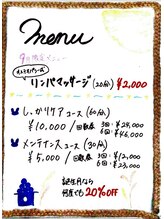 menu
9月限定メニュー
リンパマッサージ(20分) ¥2,000
しっかりケアコース(60分)
¥10,000/回数券 3回・¥28,000
メンテナンスコース(30分)
¥5,000/回数券 3回・¥12,000
誕生月なら
何度でも20%OFF